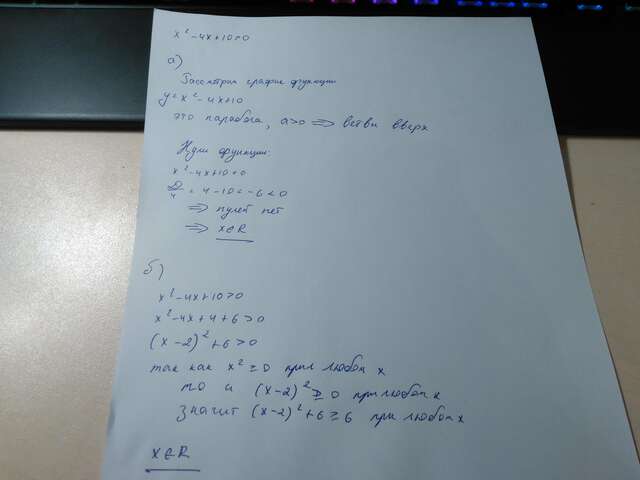 x² - 4x + 10 > 0
а)
Рассмотрим график функции
y = x² - 4x + 10
это парабола, a>0 ⇒ ветви вверх
Нули функции:
x² - 4x + 10 = 0
D/4 = 4 - 10 = -6 < 0
⇒ нулей нет
⇒ x∈R
б)
x² - 4x + 10 > 0
x² - 4x + 4 + 6 > 0
(x - 2)² + 6 > 0
так как x² ≥ 0 при любом x
то и (x-2)² ≥ 0 при любом x
значит (x-2)² + 6 ≥ 6 при любом x
x∈R